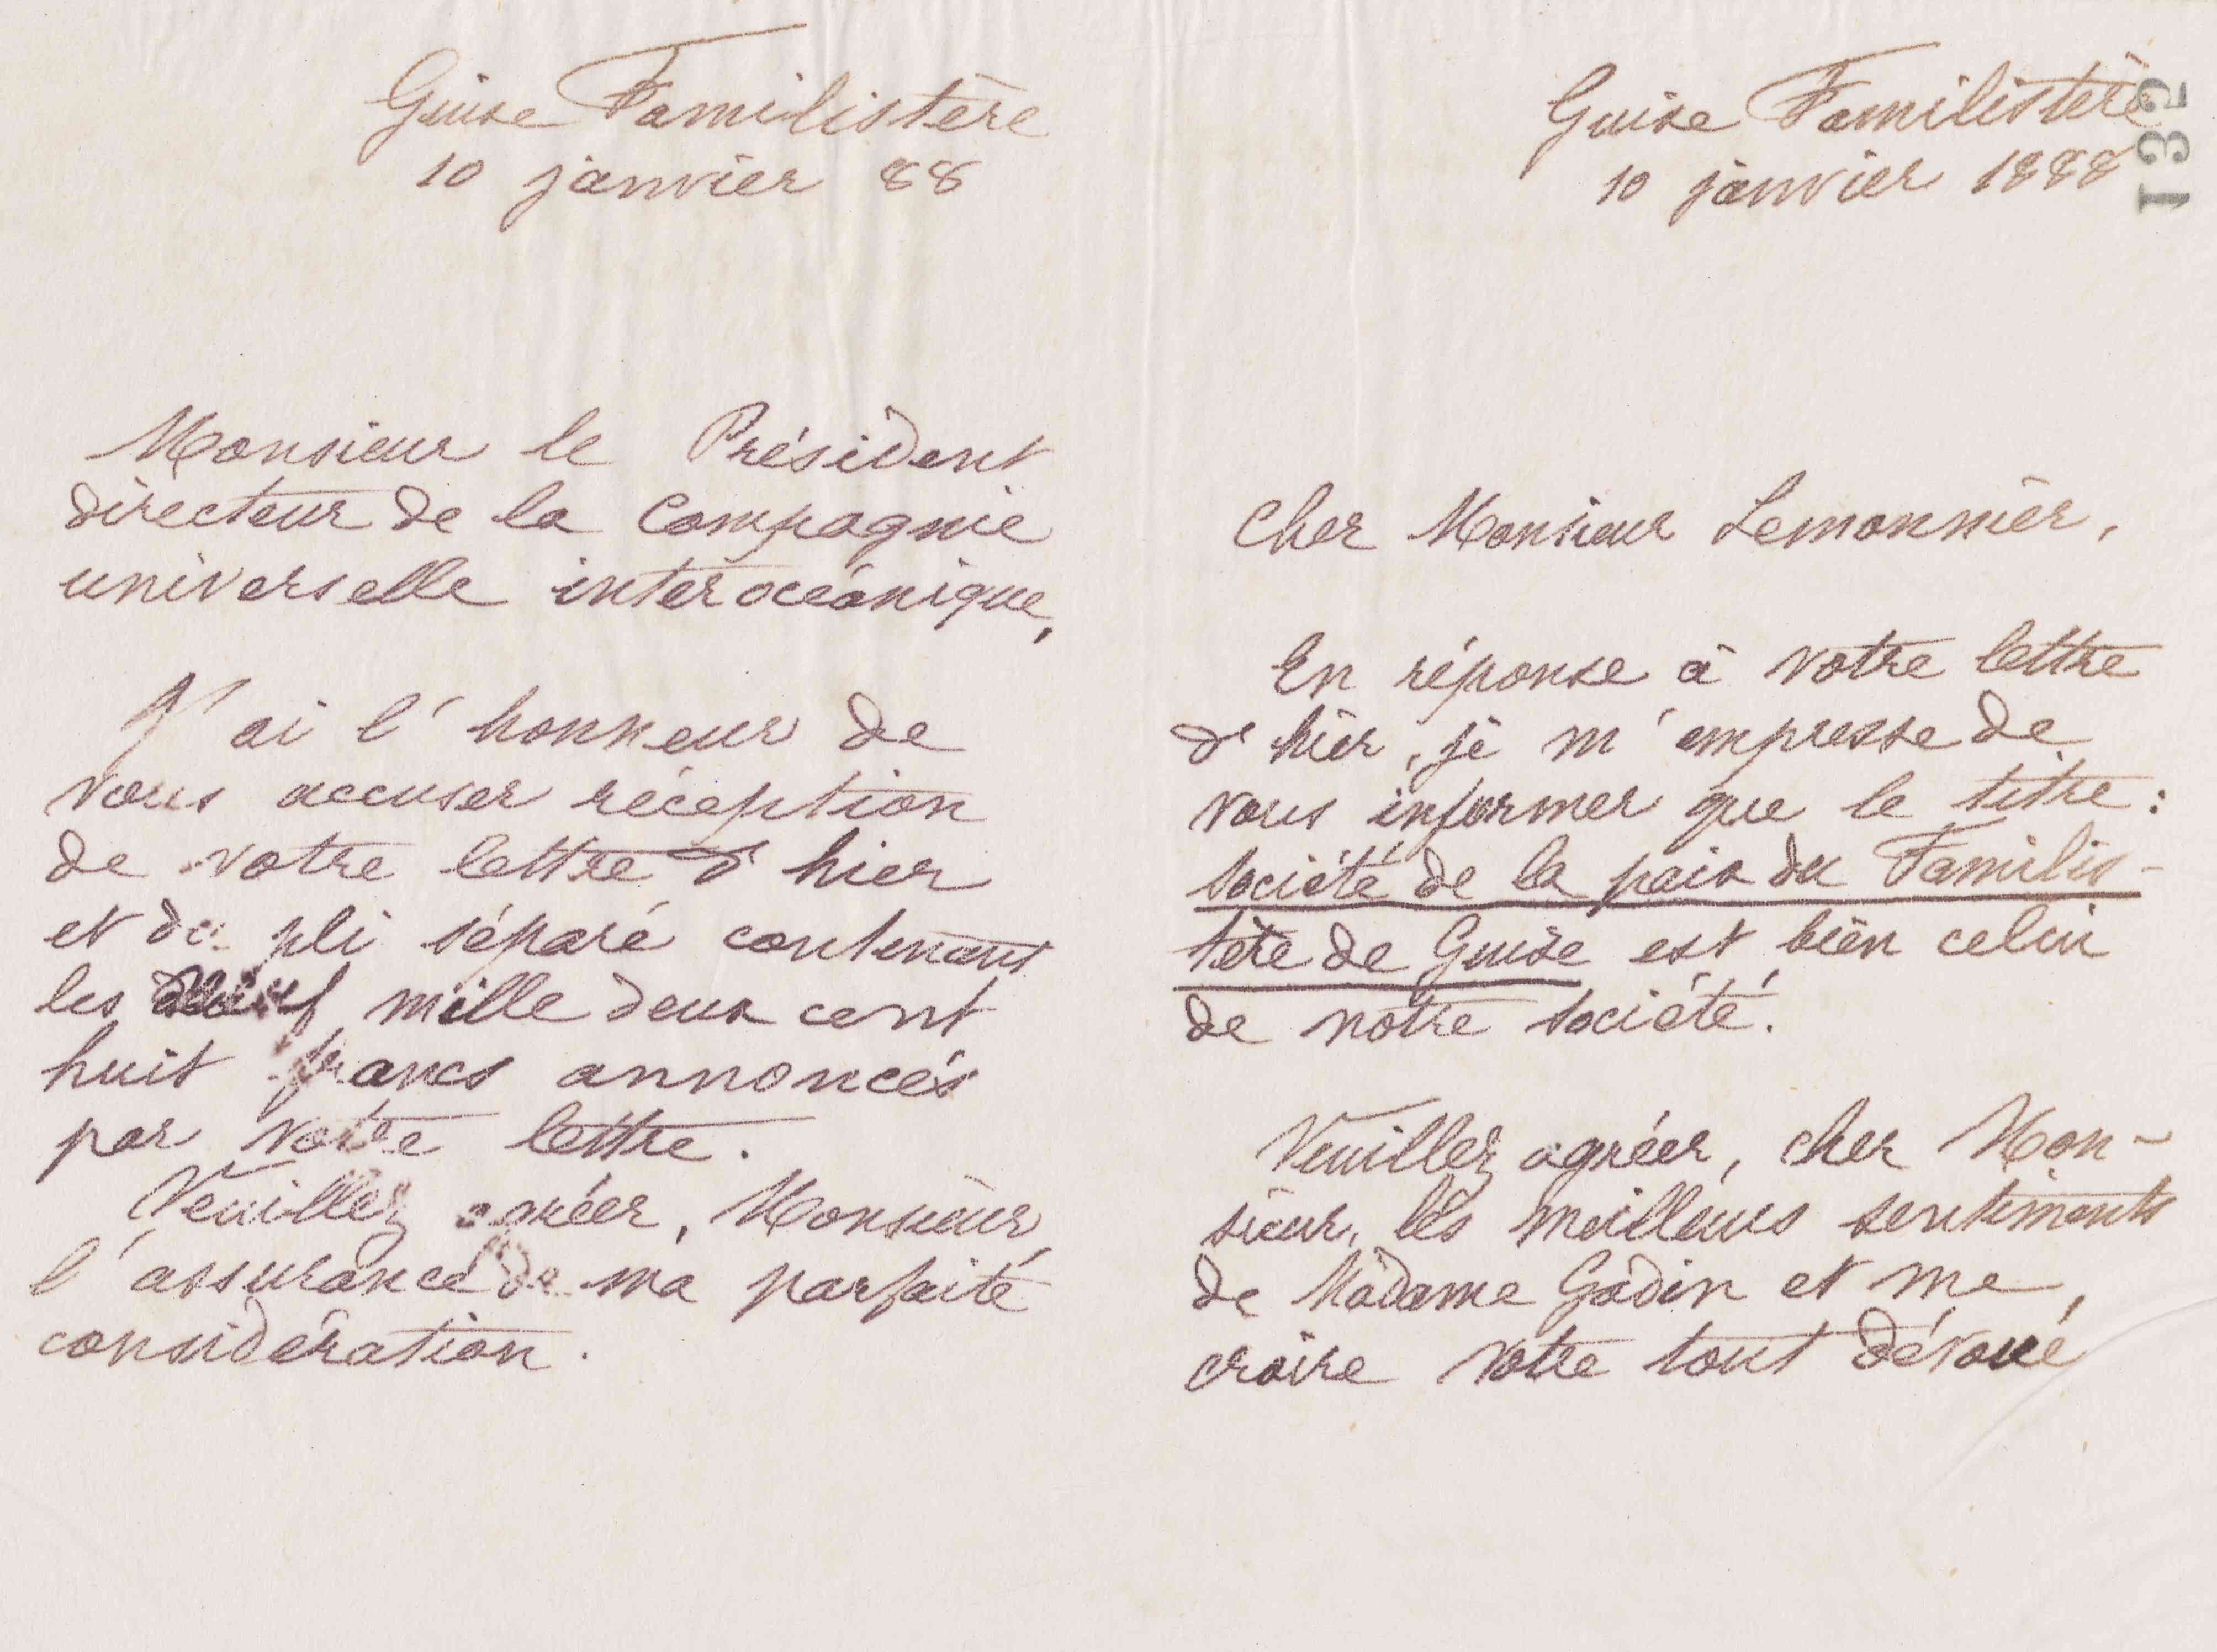 Guise Familistère
10 janvier 88
Monsieur le Président
directeur de la Compagnie
universelle interocéanique,
J'ai l'honneur de
vous accuser réception
de votre lettre d'hier
et du pli séparé contenant
les neuf mille deux cent
huit francs annoncés
par votre lettre.
Veuillez agréer, Monsieur,
l'assurance de ma parfaite
considération.
132
Guise Familistère
10 janvier 1888
Cher Monsieur Lemonnier,
En réponse à votre lettre
d'hier, je m'empresse de
vous informer que le titre :
Société de la paix du Familis-
tère de Guise est bien celui
de notre société.
Veuillez agréer, cher Mon-
sieur, les meilleurs sentiments
de Madame Godin et me
croire votre tout dévoué